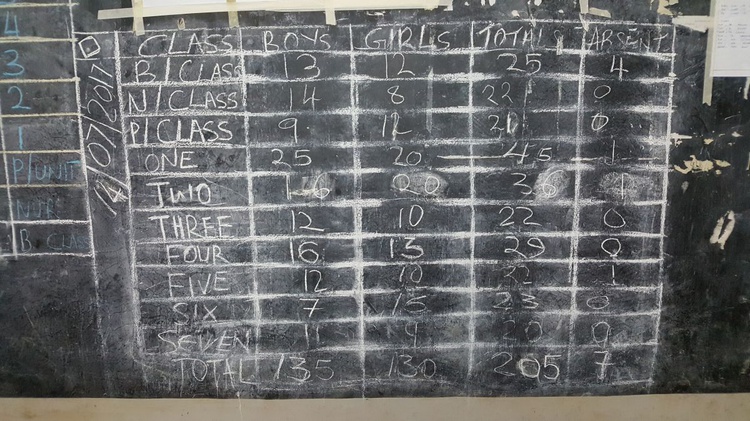 4
3
2
1
P/UNIT
B CLA
CLASS BOYS GIRLS TOTALS ABSENT
B/CLASS 13 12 25 4
N/CLASS 14 8 22 0
P/CLASS 9 12 21 0
ONE 25 20 45 1
TWO 16 20 36 1
THREE 12 10 22 0
FOUR 16 13 29 0
FIVE 12 10 22 1
SIX 7 23 0
SEVEN 11 9 20 0
TOTAL 135 130 205 7
07/2017